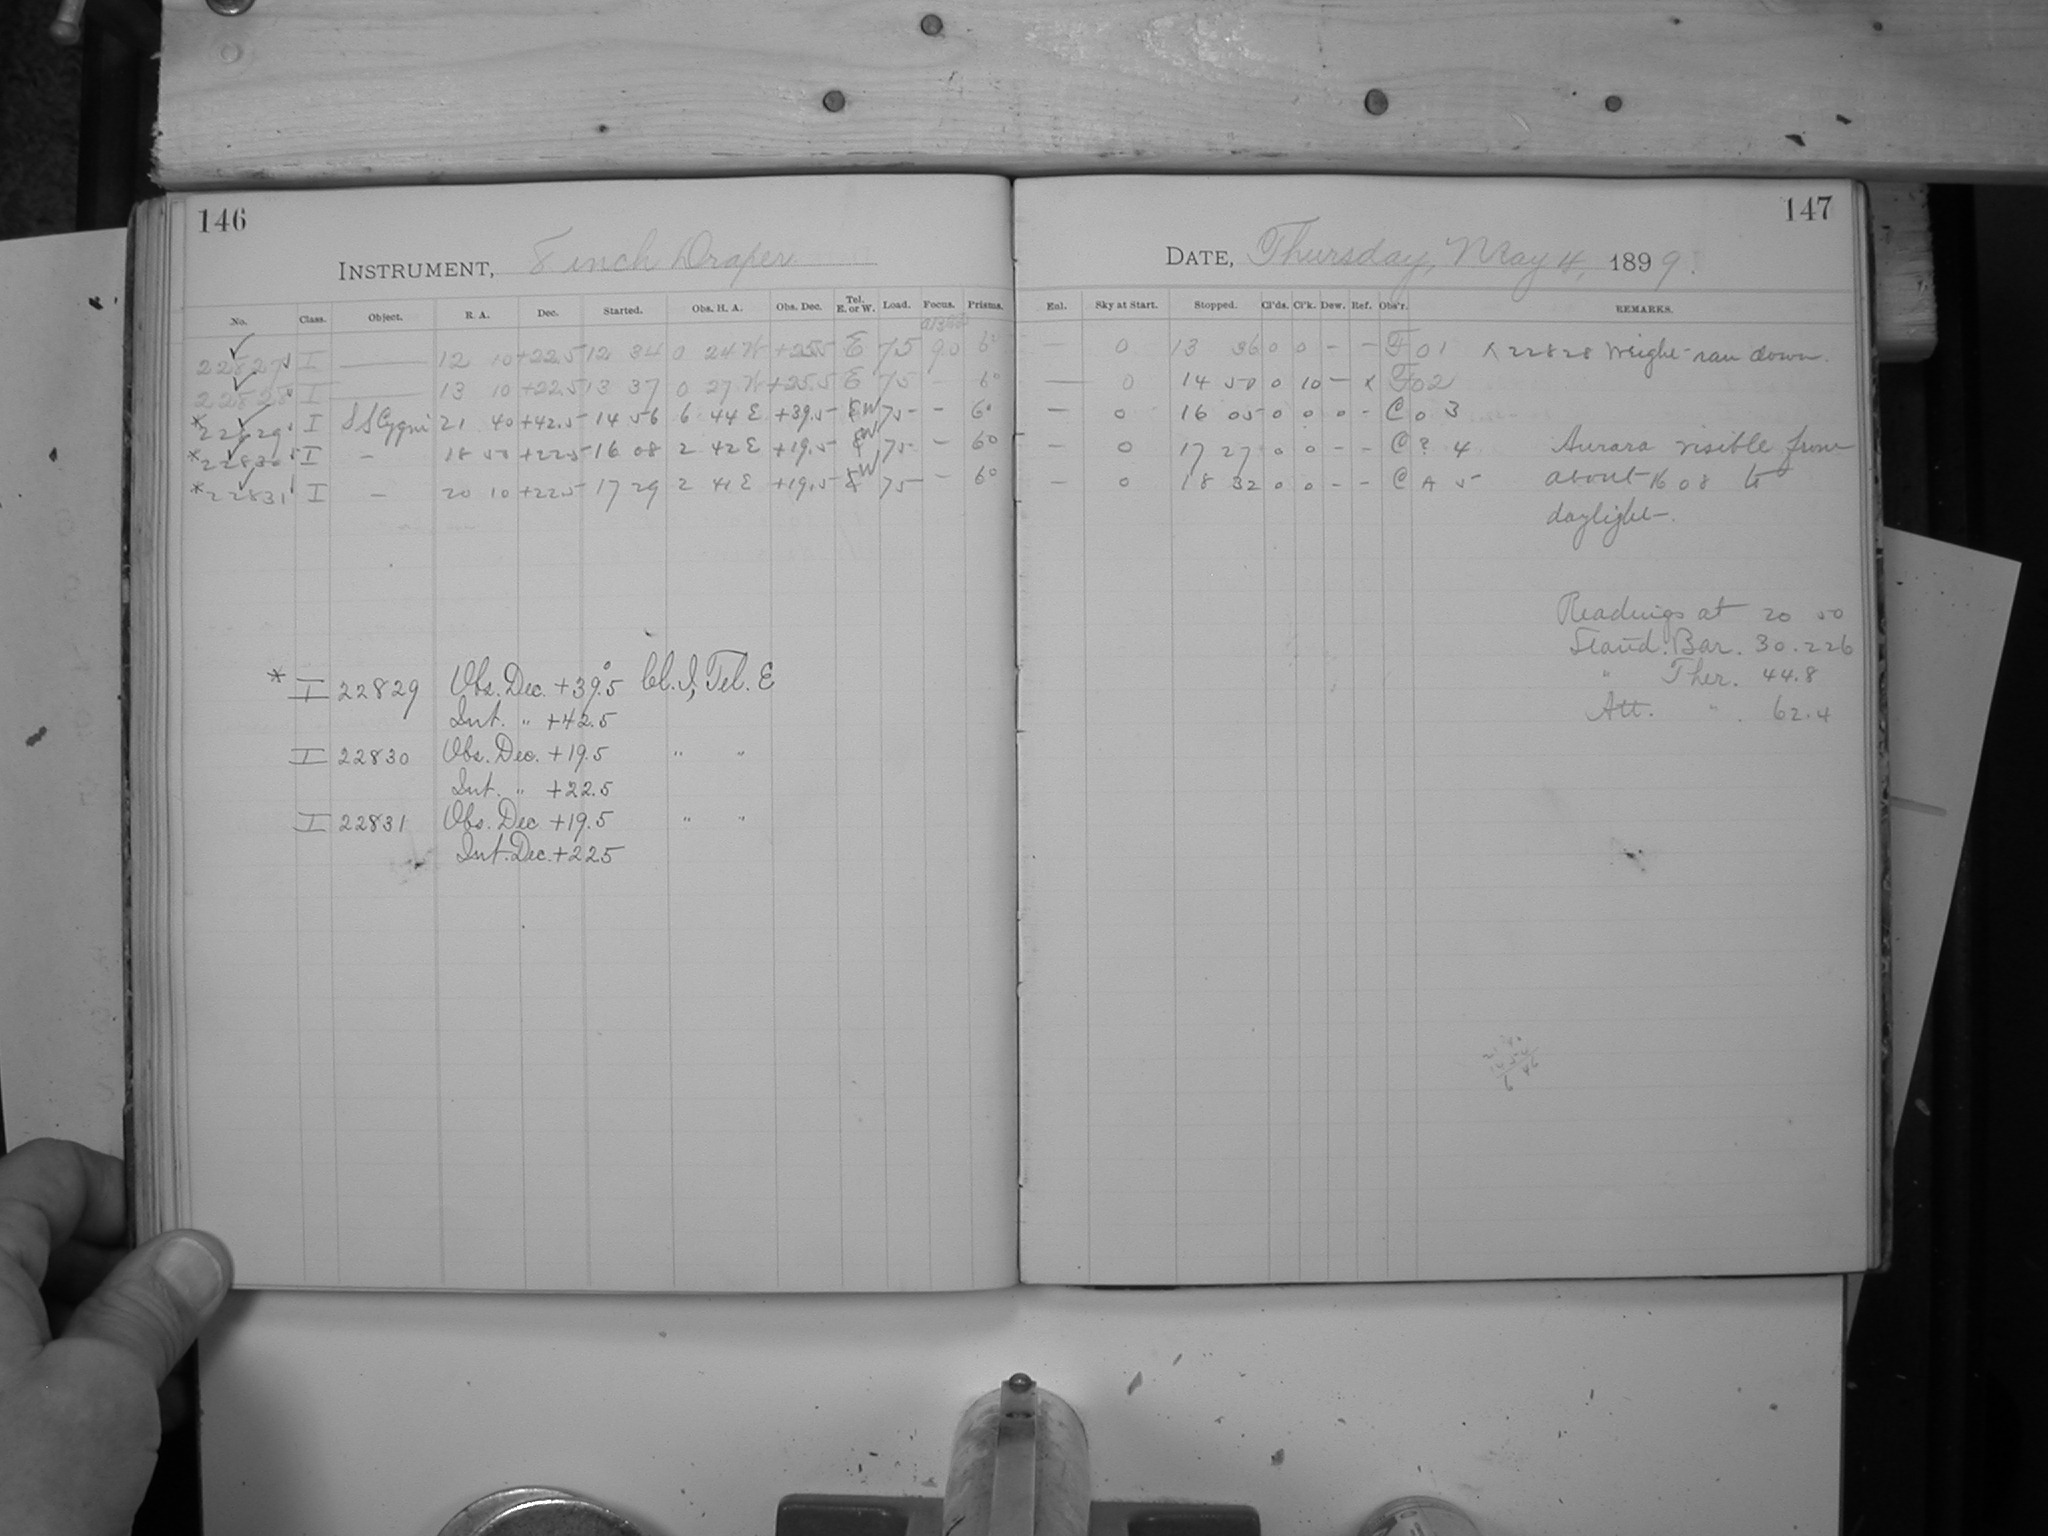 146
INSTRUMENT, 8 inch Draper
No. Class. Object. R. A. Dec. Started. Obs. H. A. Obs. Dec. Tel. E. or W. Load. Focus. Prisms.
22827 I — 12 10 +22.5 12 34 0 24 W +25.5 E 75 9.0 6°
22828 I — 13 10 +22.5 13 37 0 27 W +25.5 E 75 - 6°
*22829 I SS Cygni 21 40 +42.5 14 56 6 44 E +39.5 E W 75 - 6°
*22830 I - 18 50 +22.5 16 08 2 42 E +19.5 E W 75 - 6°
*22831 I - 20 10 +22.5 17 29 2 41 E +19.5 E W 75 - 6°
* I 22829 Obs. Dec. +39.5° Cl. I, Tel. E
Int. " +42.5
I 22830 Obs. Dec. +19.5 " "
Int. " +22.5
I 22831 Obs. Dec +19.5 " "
Int. Dec. +22.5
147
DATE, Thursday, May 4, 1899.
Enl. Sky at Start. Stopped. Cl'ds. Cl'k. Dew. Ref. Obs'r. REMARKS.
— 0 13 36 0 0 - - F 0 1 x 22828 Weight ran down.
— 0 14 50 0 10 - x F 0 2
— 0 16 05 0 0 0 - C 0 3
— 0 17 27 0 0 - - C ? 4 Aurora visible from
— 0 18 32 0 0 - - C A 5 about 16 08 to
daylight.
Readings at 20 50
Stand. Bar. 30.226
" Ther. 44.8
Att. " . 62.4